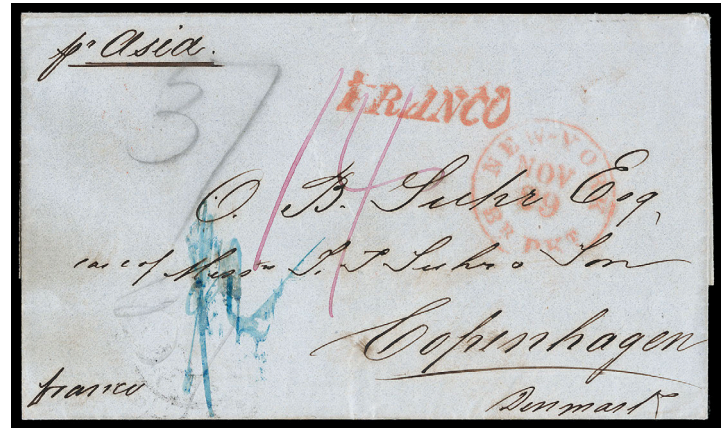 pr Asia.
37
14
FRANCO
NEW-YORK
NOV
29
BR. PKT.
O. B. Suhr Esq,
care of Messrs J. P. Suhr & Son
Copenhagen
franco
Denmark